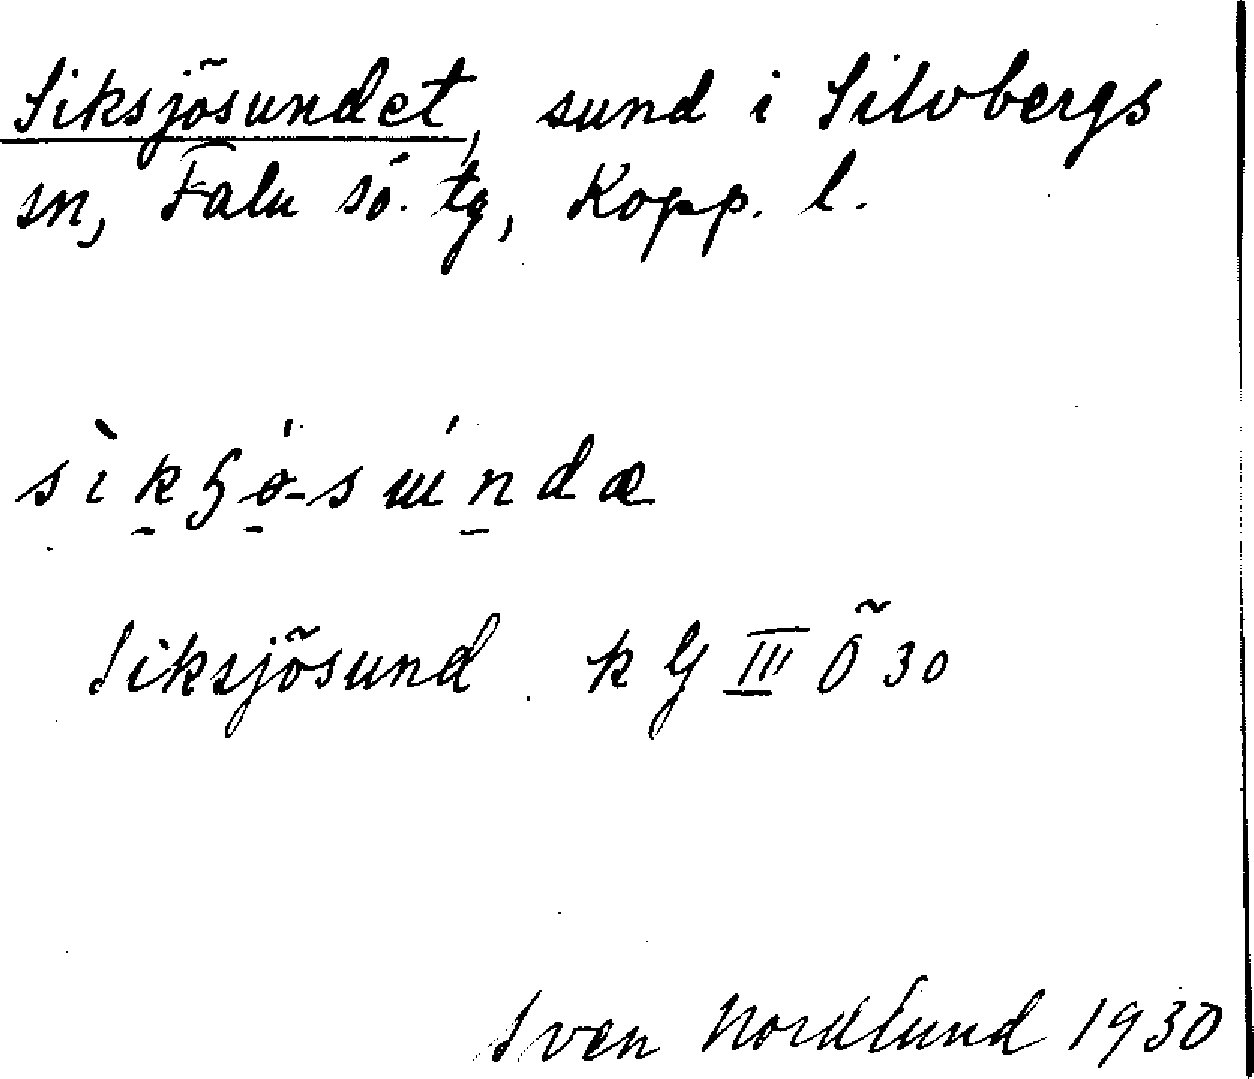 Siksjösundet, sund i Silvbergs
sn, Falu sö. tg, Kopp. l.
Siksjösund k G III Ö 30
Sven Nordlund 1930